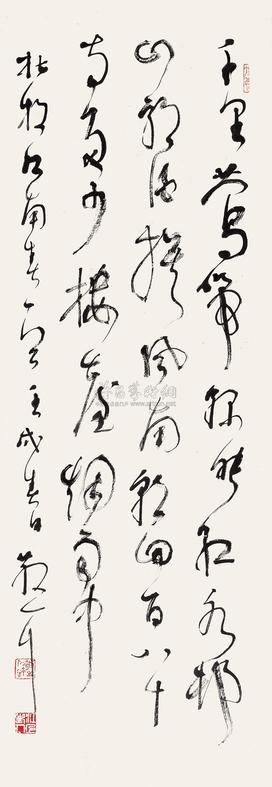 千里鶯啼綠映紅水村
山郭酒旗風南朝四百八十
寺多少樓臺煙雨中
杜牧江南春一首壬戌春日